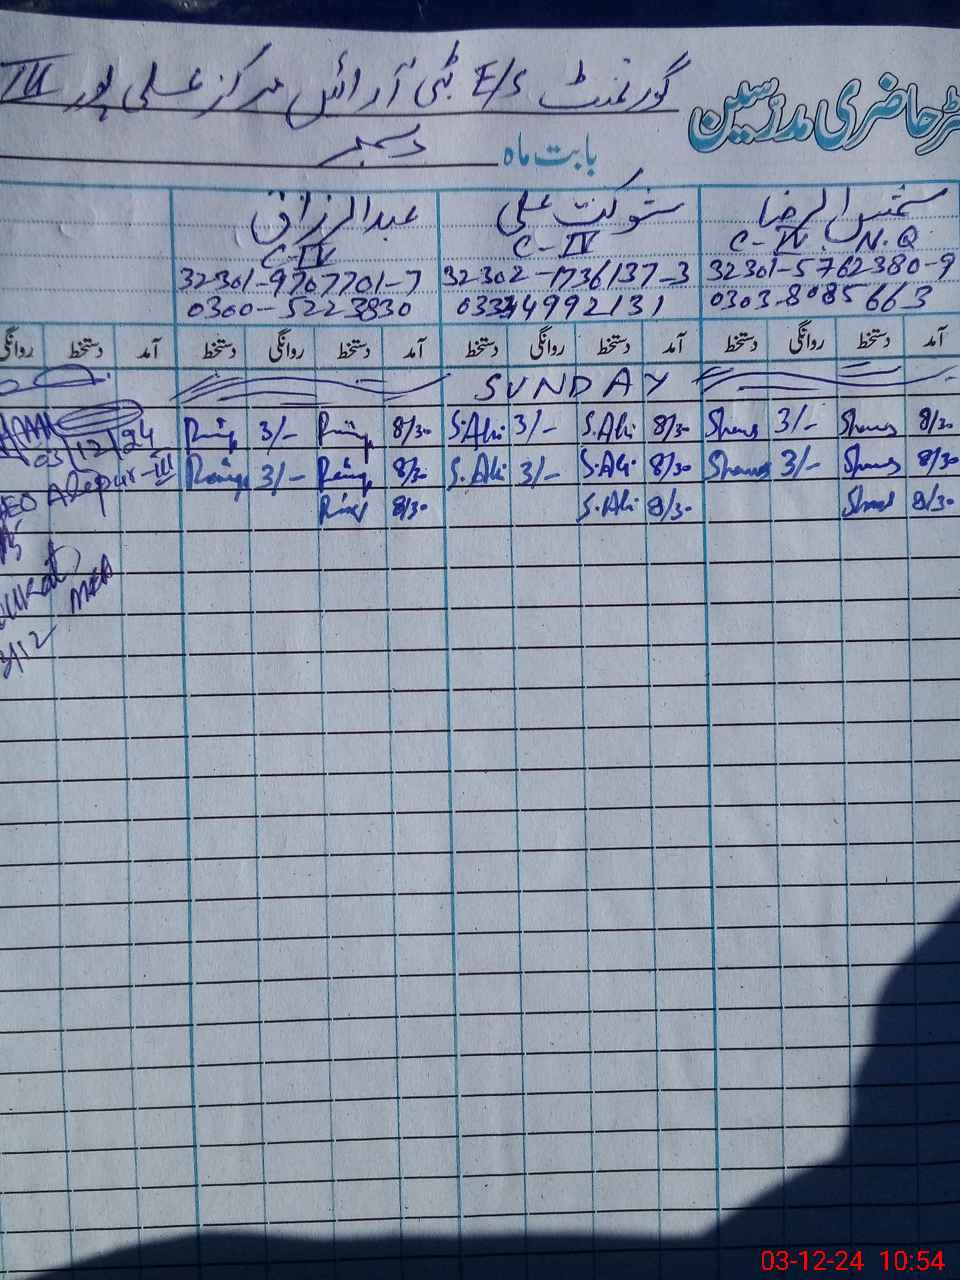 گورنمنٹ E/S ٹی آرائیں مرکز علی پور III
رجسٹر حاضری مدرسین
بابت ماہ دسمبر
شمس الرضا شوکت علی عبدالرزاق
C-IV N.Q C-IV C-IV
32301-5762380-9 32302-1736137-3 32301-9707701-7
0303-8085663 03344992131 0300-5223830
آمد دستخط روانگی دستخط آمد دستخط روانگی دستخط آمد دستخط روانگی دستخط آمد دستخط روانگی
SUNDAY
8/30 Shams 3/- Shams 8/30 S.Ali 3/- S.Ali 8/30 3/-
03/12/24
8/30 Shams 3/- Shams 8/30 S.Ali 3/- S.Ali 8/30 3/-
AEO Alepur-III
8/30 Shams 8/30 S.Ali 8/30
MEA
3/12
03-12-24 10:54